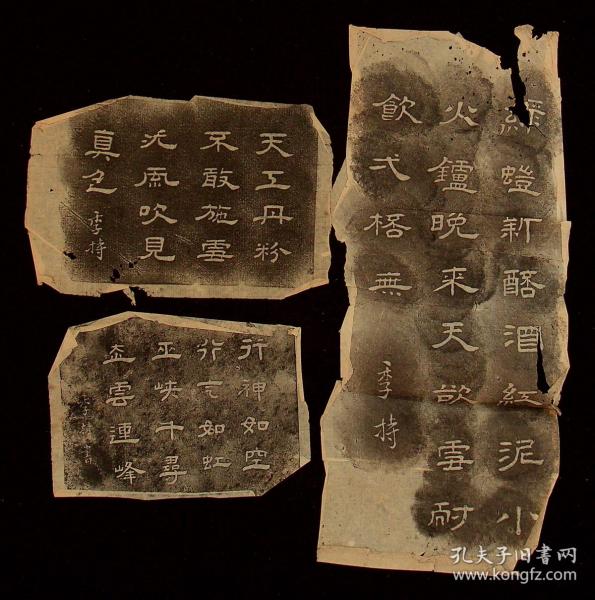 綠螘新醅酒紅泥小
火鑪晚来天欲雪耐
飲弌桮無
季持
天工丹粉
不敢施雪
沐風吹見
真色
季持
行神如空
行气如虹
巫峽千尋
走雲連峰
孔夫子旧书网
www.kongfz.com